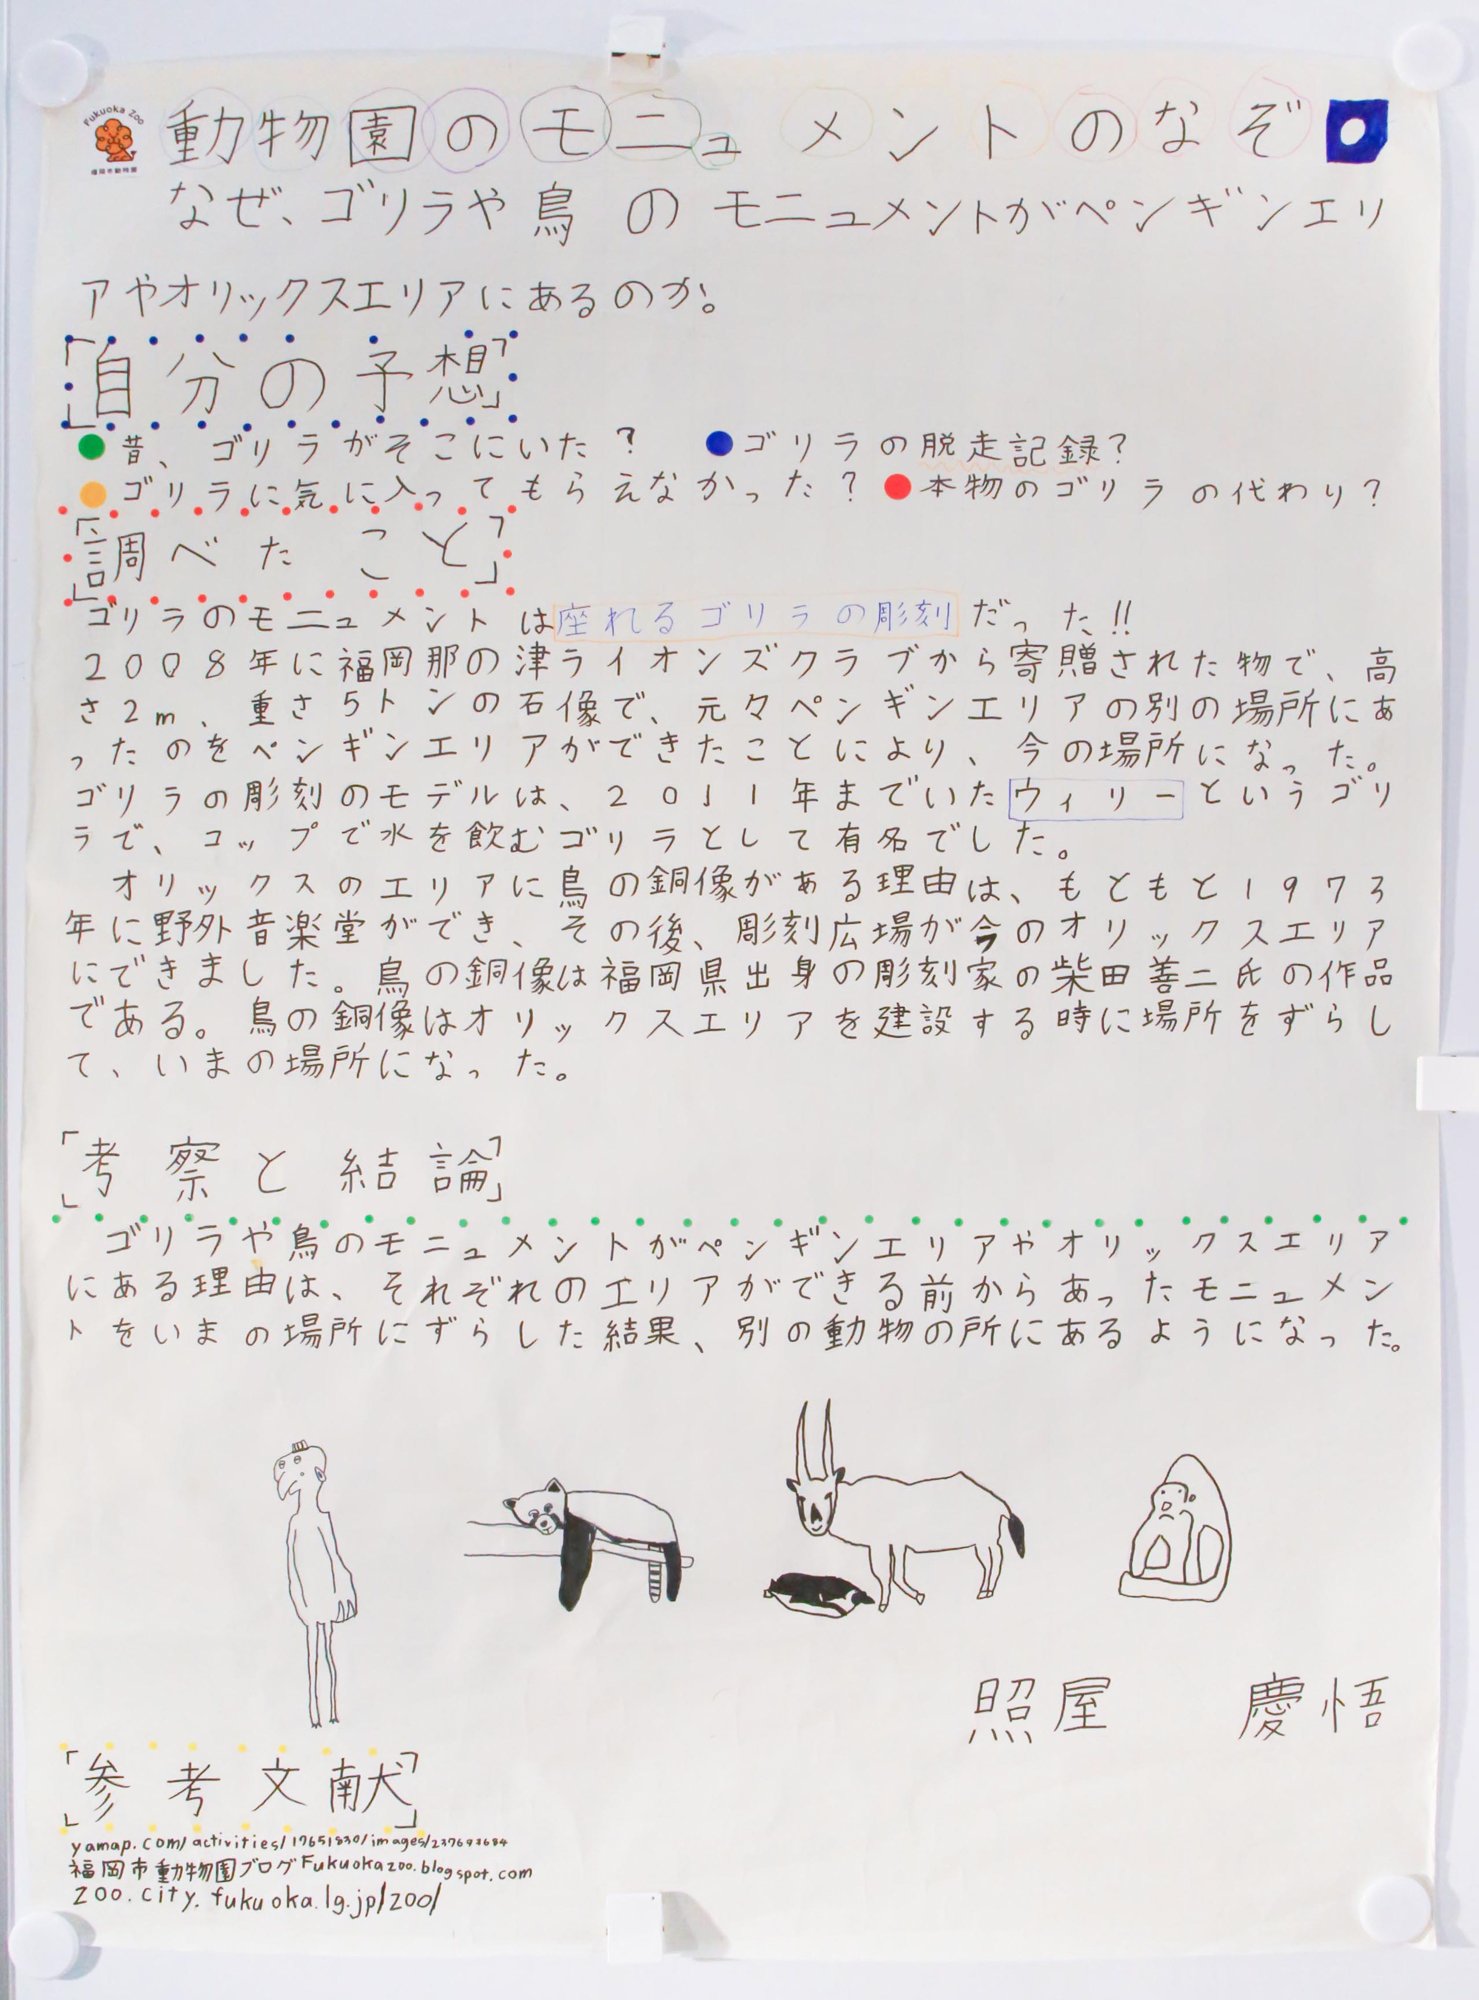 Fukuoka Zoo
福岡市動物園
動物園のモニュメントのなぞ
なぜ、ゴリラや鳥のモニュメントがペンギンエリ
アやオリックスエリアにあるのか。
「自分の予想」
昔、ゴリラがそこにいた？ ゴリラの脱走記録？
ゴリラに気に入ってもらえなかった？ 本物のゴリラの代わり？
「調べたこと」
ゴリラのモニュメントは座れるゴリラの彫刻だった!!
2008年に福岡那の津ライオンズクラブから寄贈された物で、高
さ2m、重さ5トンの石像で、元々ペンギンエリアの別の場所にあ
ったのをペンギンエリアができたことにより、今の場所になった。
ゴリラの彫刻のモデルは、2011年までいたウィリーというゴリ
ラで、コップで水を飲むゴリラとして有名でした。
オリックスのエリアに鳥の銅像がある理由は、もともと1973
年に野外音楽堂ができ、その後、彫刻広場が今のオリックスエリア
にできました。鳥の銅像は福岡県出身の彫刻家の柴田善二氏の作品
である。鳥の銅像はオリックスエリアを建設する時に場所をずらし
て、いまの場所になった。
「考察と結論」
ゴリラや鳥のモニュメントがペンギンエリアやオリックスエリア
にある理由は、それぞれのエリアができる前からあったモニュメン
トをいまの場所にずらした結果、別の動物の所にあるようになった。
照屋 慶悟
「参考文献」
yamap.com/activities/17651830/images/237693684
福岡市動物園ブログFukuokazoo.blogspot.com
zoo.city.fukuoka.lg.jp/zoo/